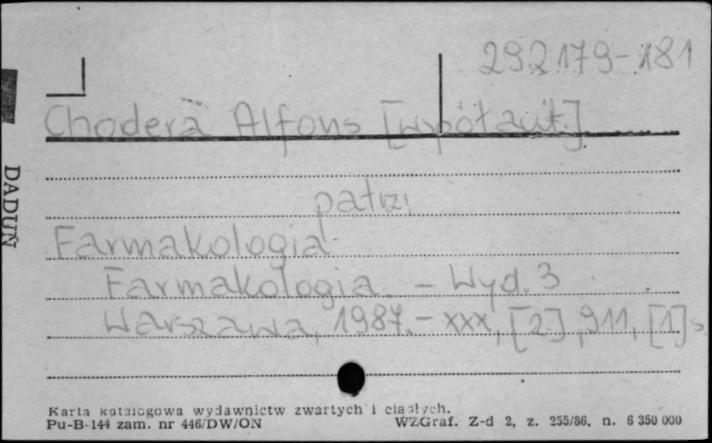 292179-181
Chodera Alfons [współaut.]
patrz
Farmakologia
Farmakologia. – Wyd. 3
Warszawa, 1987. – XXX, [2], 911, [1] s
DADUŃ
Karta katalogowa wydawnictw zwartych i ciągłych.
Pu-B-144 zam. nr 446/DW/ON WZGraf. Z-d 2, z. 255/86, n. 6 350 000